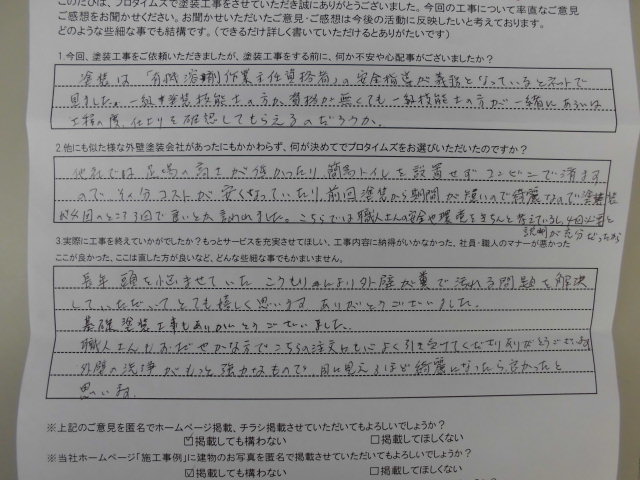 このたびは、プロタイムズで塗装工事をさせていただき誠にありがとうございました。今回の工事について率直なご意見
ご感想をお聞かせください。お聞かせいただいたご意見・ご感想は今後の活動に反映したいと考えております。
どのような些細な事でも結構です。(できるだけ詳しく書いていただけるとありがたいです)
1.今回、塗装工事をご依頼いただきましたが、塗装工事をする前に、何か不安や心配事がございましたか?
塗装は「有機溶剤作業主任資格者」の安全指導が義務となっているとネットで
見ました。一級塗装技能士の方が資格が無くても一級技能士の方が一緒に あるいは
工程の度、仕上りを確認してもらえるのだろうか。
2.他にも似た様な外壁塗装会社があったにもかかわらず、何が決めてでプロタイムズをお選びいただいたのですか?
他社では 足場の高さが低かったり 簡易トイレを設置せず コンビニで済ます
ので その分コストが安くなっていたり 前回塗装から期間が短いので綺麗なので 塗装
が4回のところ3回で良いとか 言われました。こちらでは職人さんの安全や環境をきちんと考えているし 4回必要と
説明が充分だったから
3.実際に工事を終えていかがでしたか?もっとサービスを充実させてほしい、工事内容に納得がいかなかった、社員・職人のマナーが悪かった
ここが良かった、ここは直した方が良いなど、どんな些細な事でもかまいません。
長年 頭を悩ませていた こうもりにより外壁が糞で汚れる問題を解決
していただいて とても嬉しく思います ありがとうございました。
基礎塗装工事もありがとうございました。
職人さんもおだやかな方で こちらの注文にもこころよく引き受けてくださりありがとうございます
外壁の洗浄がもっと強力なもので 目に見えるほど綺麗になったら良かったと
思いました。
※上記のご意見を匿名でホームページ掲載、チラシ掲載させていただいてもよろしいでしょうか?
☑掲載しても構わない □掲載してほしくない
※当社ホームページ「施工事例」に建物のお写真を匿名で掲載させていただいてもよろしいでしょうか?
☑掲載しても構わない □掲載してほしくない